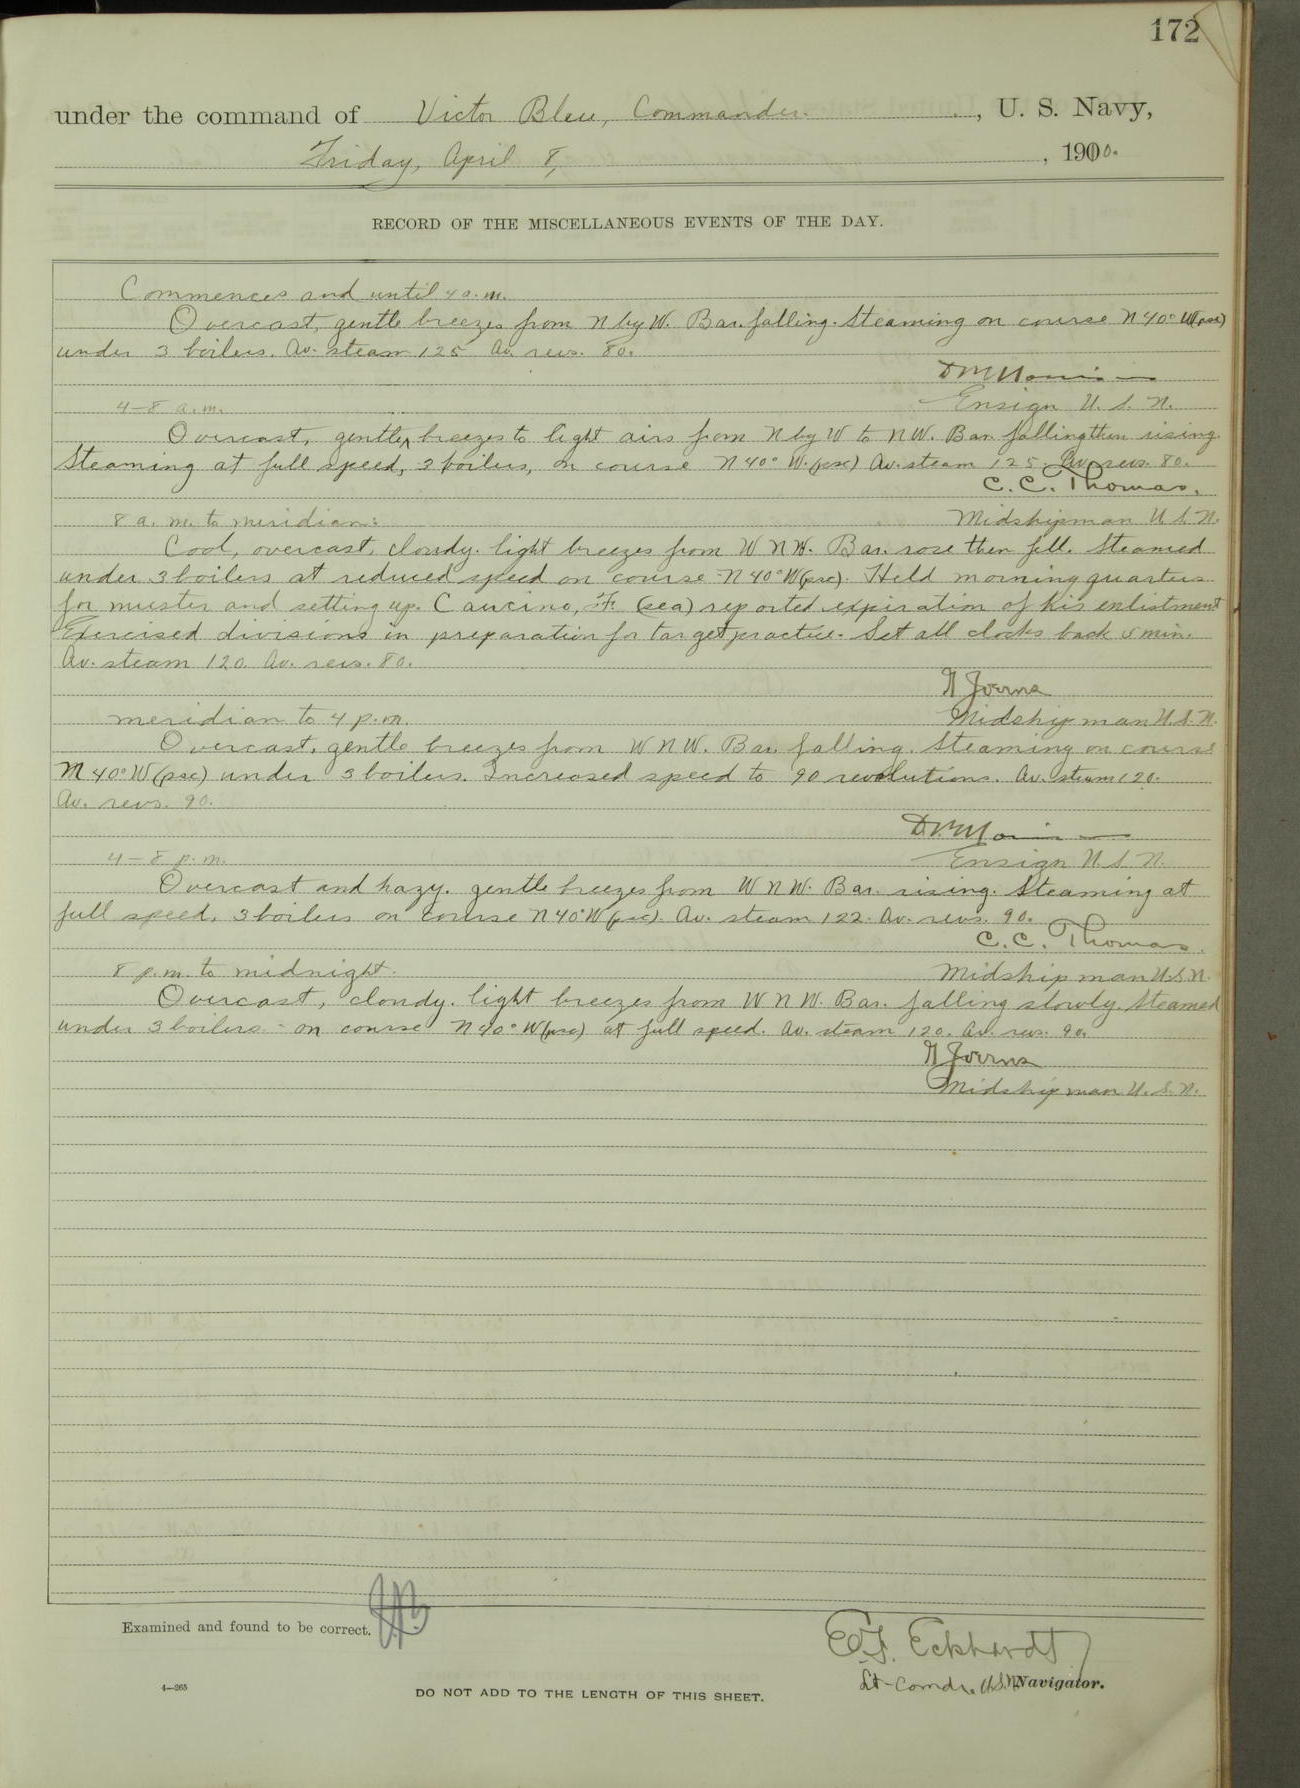 172
under the command of Victor Blue, Commander. , U. S. Navy,
Friday, April 8, , 1910.
RECORD OF THE MISCELLANEOUS EVENTS OF THE DAY.
Commences and until 4 a. m.
Overcast, gentle breezes from N by W. Bar. falling. Steaming on course N 40° W (psc)
under 3 boilers. Av. steam 125 Av. revs. 80.
Ensign U. S. N.
4-8 a. m.
Overcast, gentle breezes to light airs from N by W to NW. Bar. falling then rising.
Steaming at full speed, 3 boilers, on course N 40° W. (psc) Av. steam 125. Av. revs. 80.
C. C. Thomas.
8 a. m. to meridian: Midshipman U. S. N.
Cool, overcast, cloudy. light breezes from W N W. Bar. rose then fell. Steamed
under 3 boilers at reduced speed on course N 40° W (psc). Held morning quarters
for muster and setting up. Cancino, F. (sea) reported expiration of his enlistment
Exercised divisions in preparation for target practice. Set all clocks back 5 min.
Av. steam 120. Av. revs. 80.
meridian to 4 p. m. Midshipman U. S. N.
Overcast, gentle breezes from W N W. Bar. falling. Steaming on course
N 40° W (psc) under 3 boilers. Increased speed to 90 revolutions. Av. steam 120.
Av. revs. 90.
4-8 p. m. Ensign U. S. N.
Overcast and hazy. gentle breezes from W N W. Bar. rising. Steaming at
full speed, 3 boilers on course N 40° W (psc). Av. steam 122. Av. revs. 90.
C. C. Thomas.
8 p. m. to midnight. Midshipman U. S. N.
Overcast, cloudy. light breezes from W N W. Bar. falling slowly. Steamed
under 3 boilers - on course N 40° W (psc) at full speed. Av. steam 120. Av. revs. 90.
Midshipman U. S. N.
Examined and found to be correct.
E. F. Eckhardt
Lt-Comdr. U.S.N. Navigator.
4—265
DO NOT ADD TO THE LENGTH OF THIS SHEET.